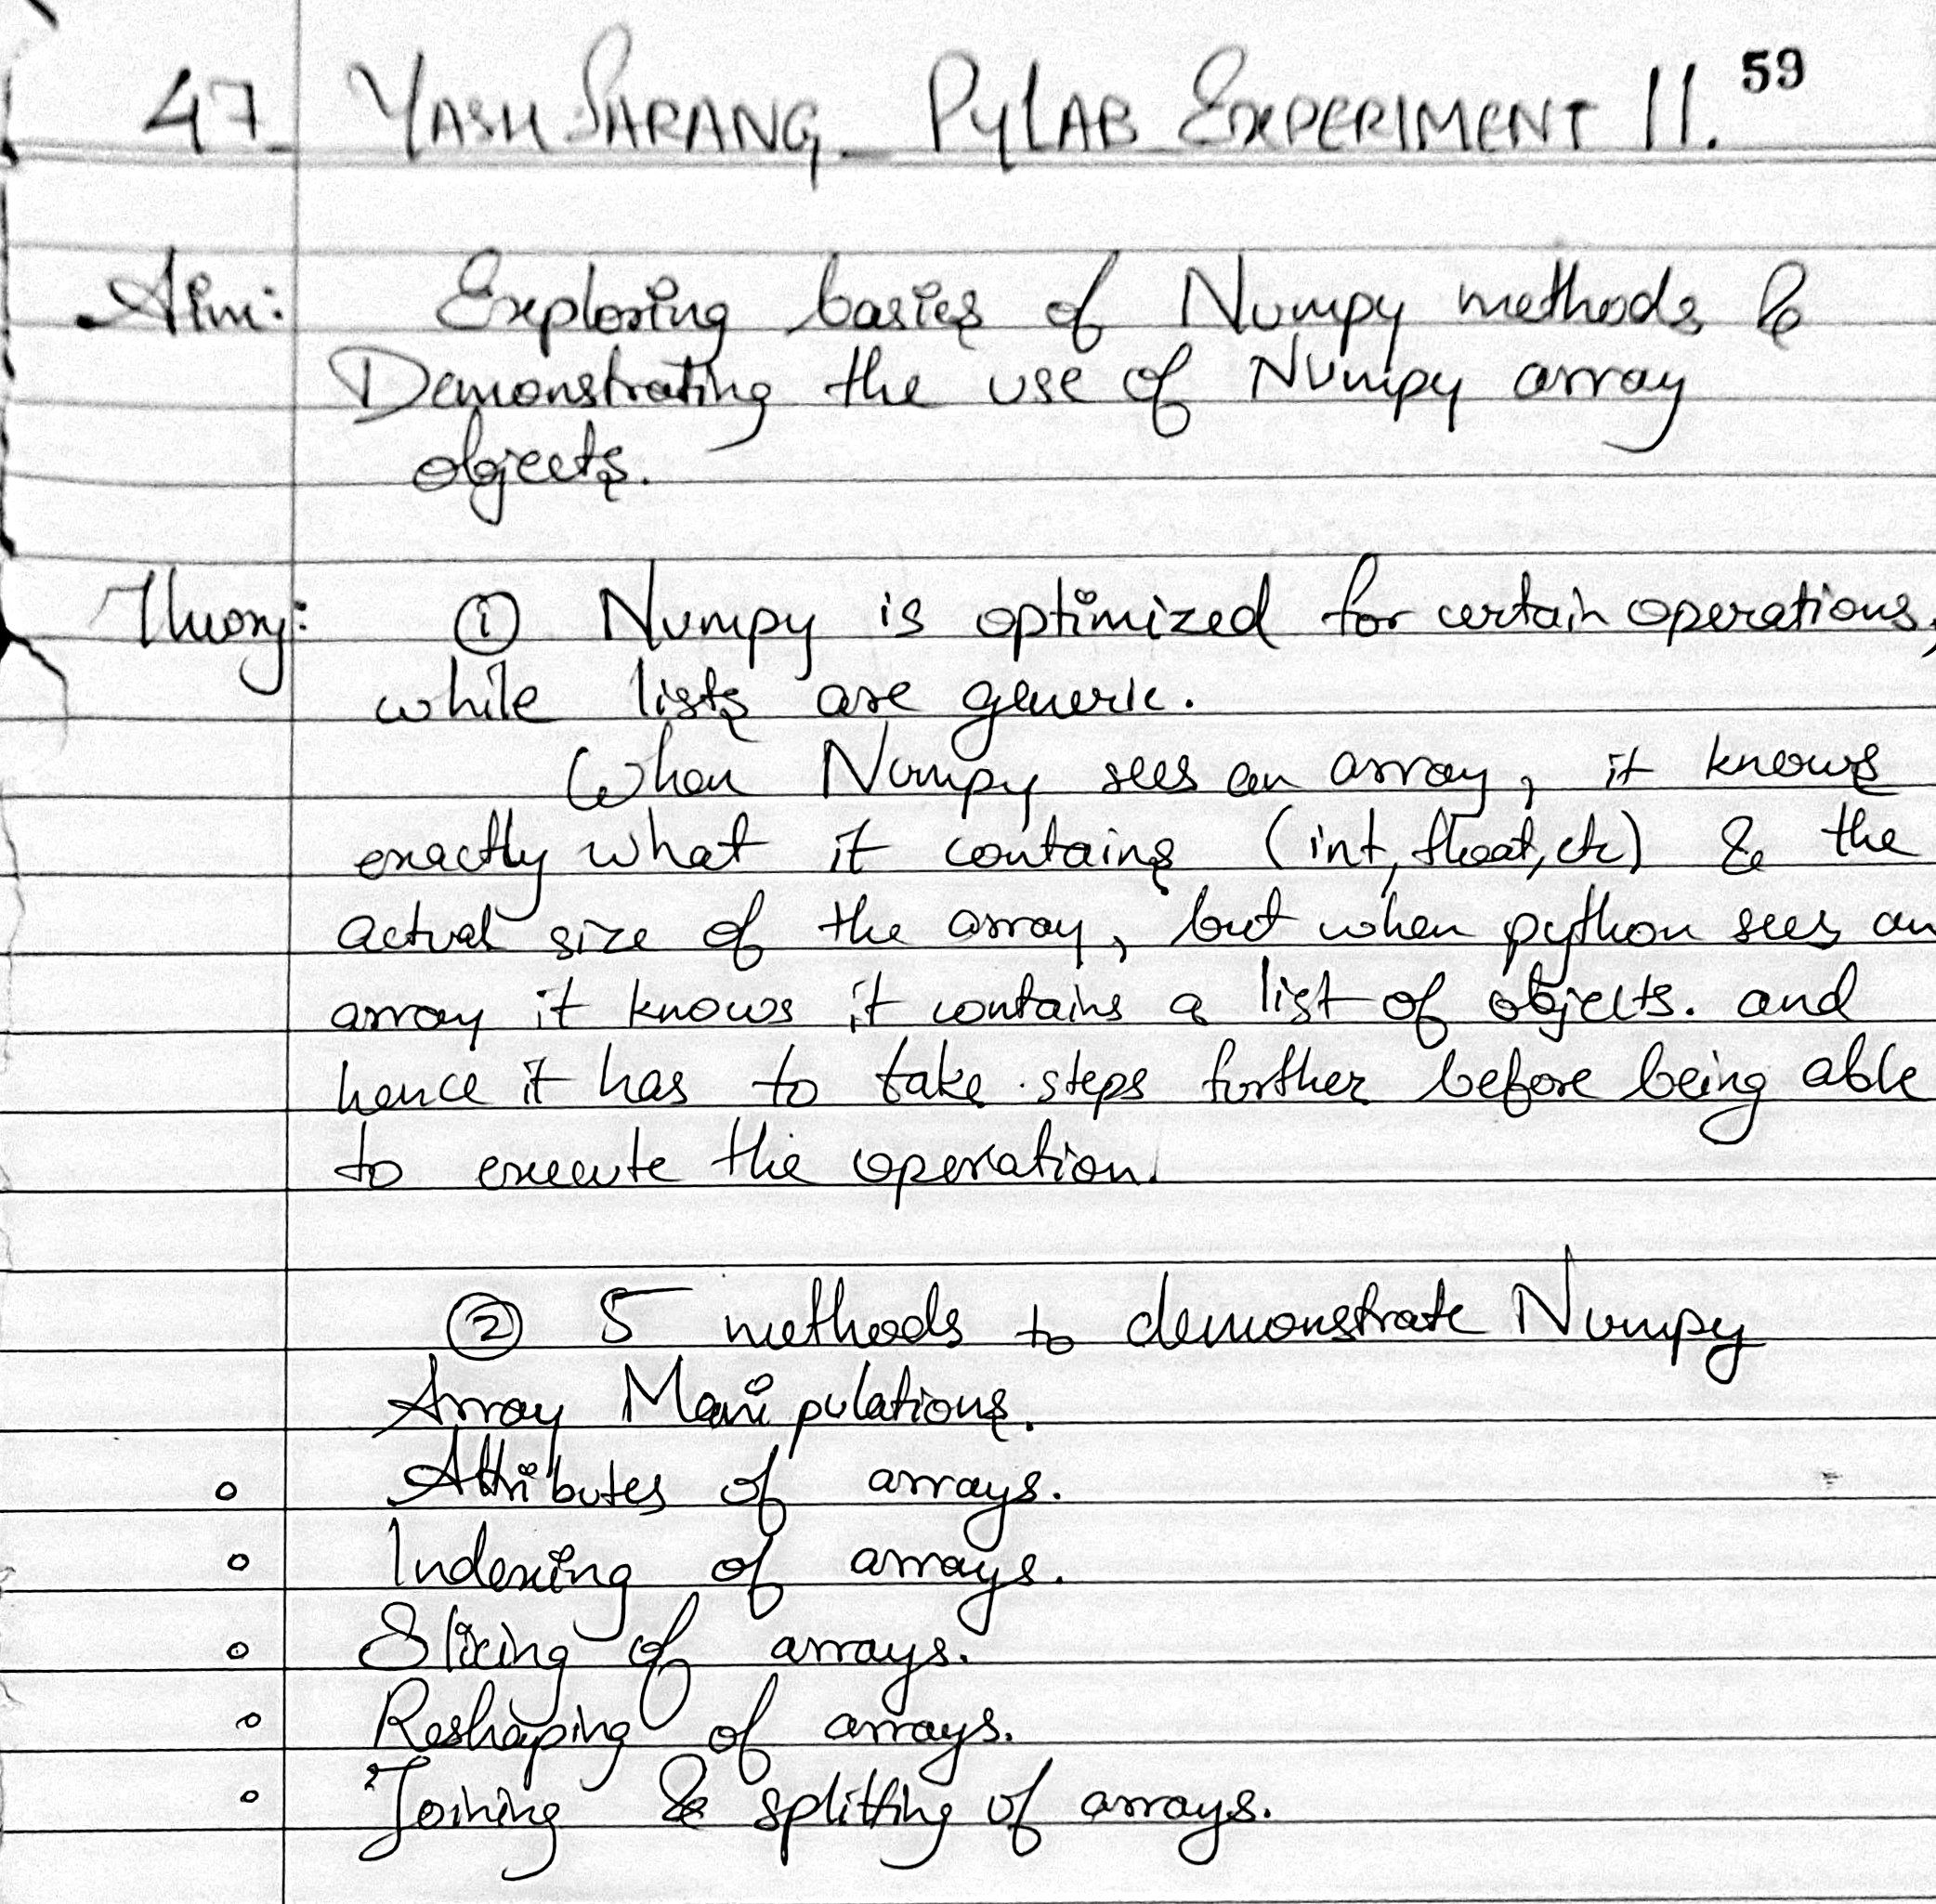 59
47 YASH SARANG_ PYLAB EXPERIMENT 11.
Aim: Exploring basics of Numpy methods &
Demonstrating the use of Numpy array
objects.
Theory: ① Numpy is optimized for certain operations,
while lists are generic.
When Numpy sees an array, it knows
exactly what it contains (int, float, etc) & the
actual size of the array, but when python sees an
array it knows it contains a list of objects. and
hence it has to take steps further before being able
to execute the operation.
② 5 methods to demonstrate Numpy
Array Manipulations.
∘ Attributes of arrays.
∘ Indexing of arrays.
∘ Slicing of arrays.
∘ Reshaping of arrays.
∘ Joining & splitting of arrays.